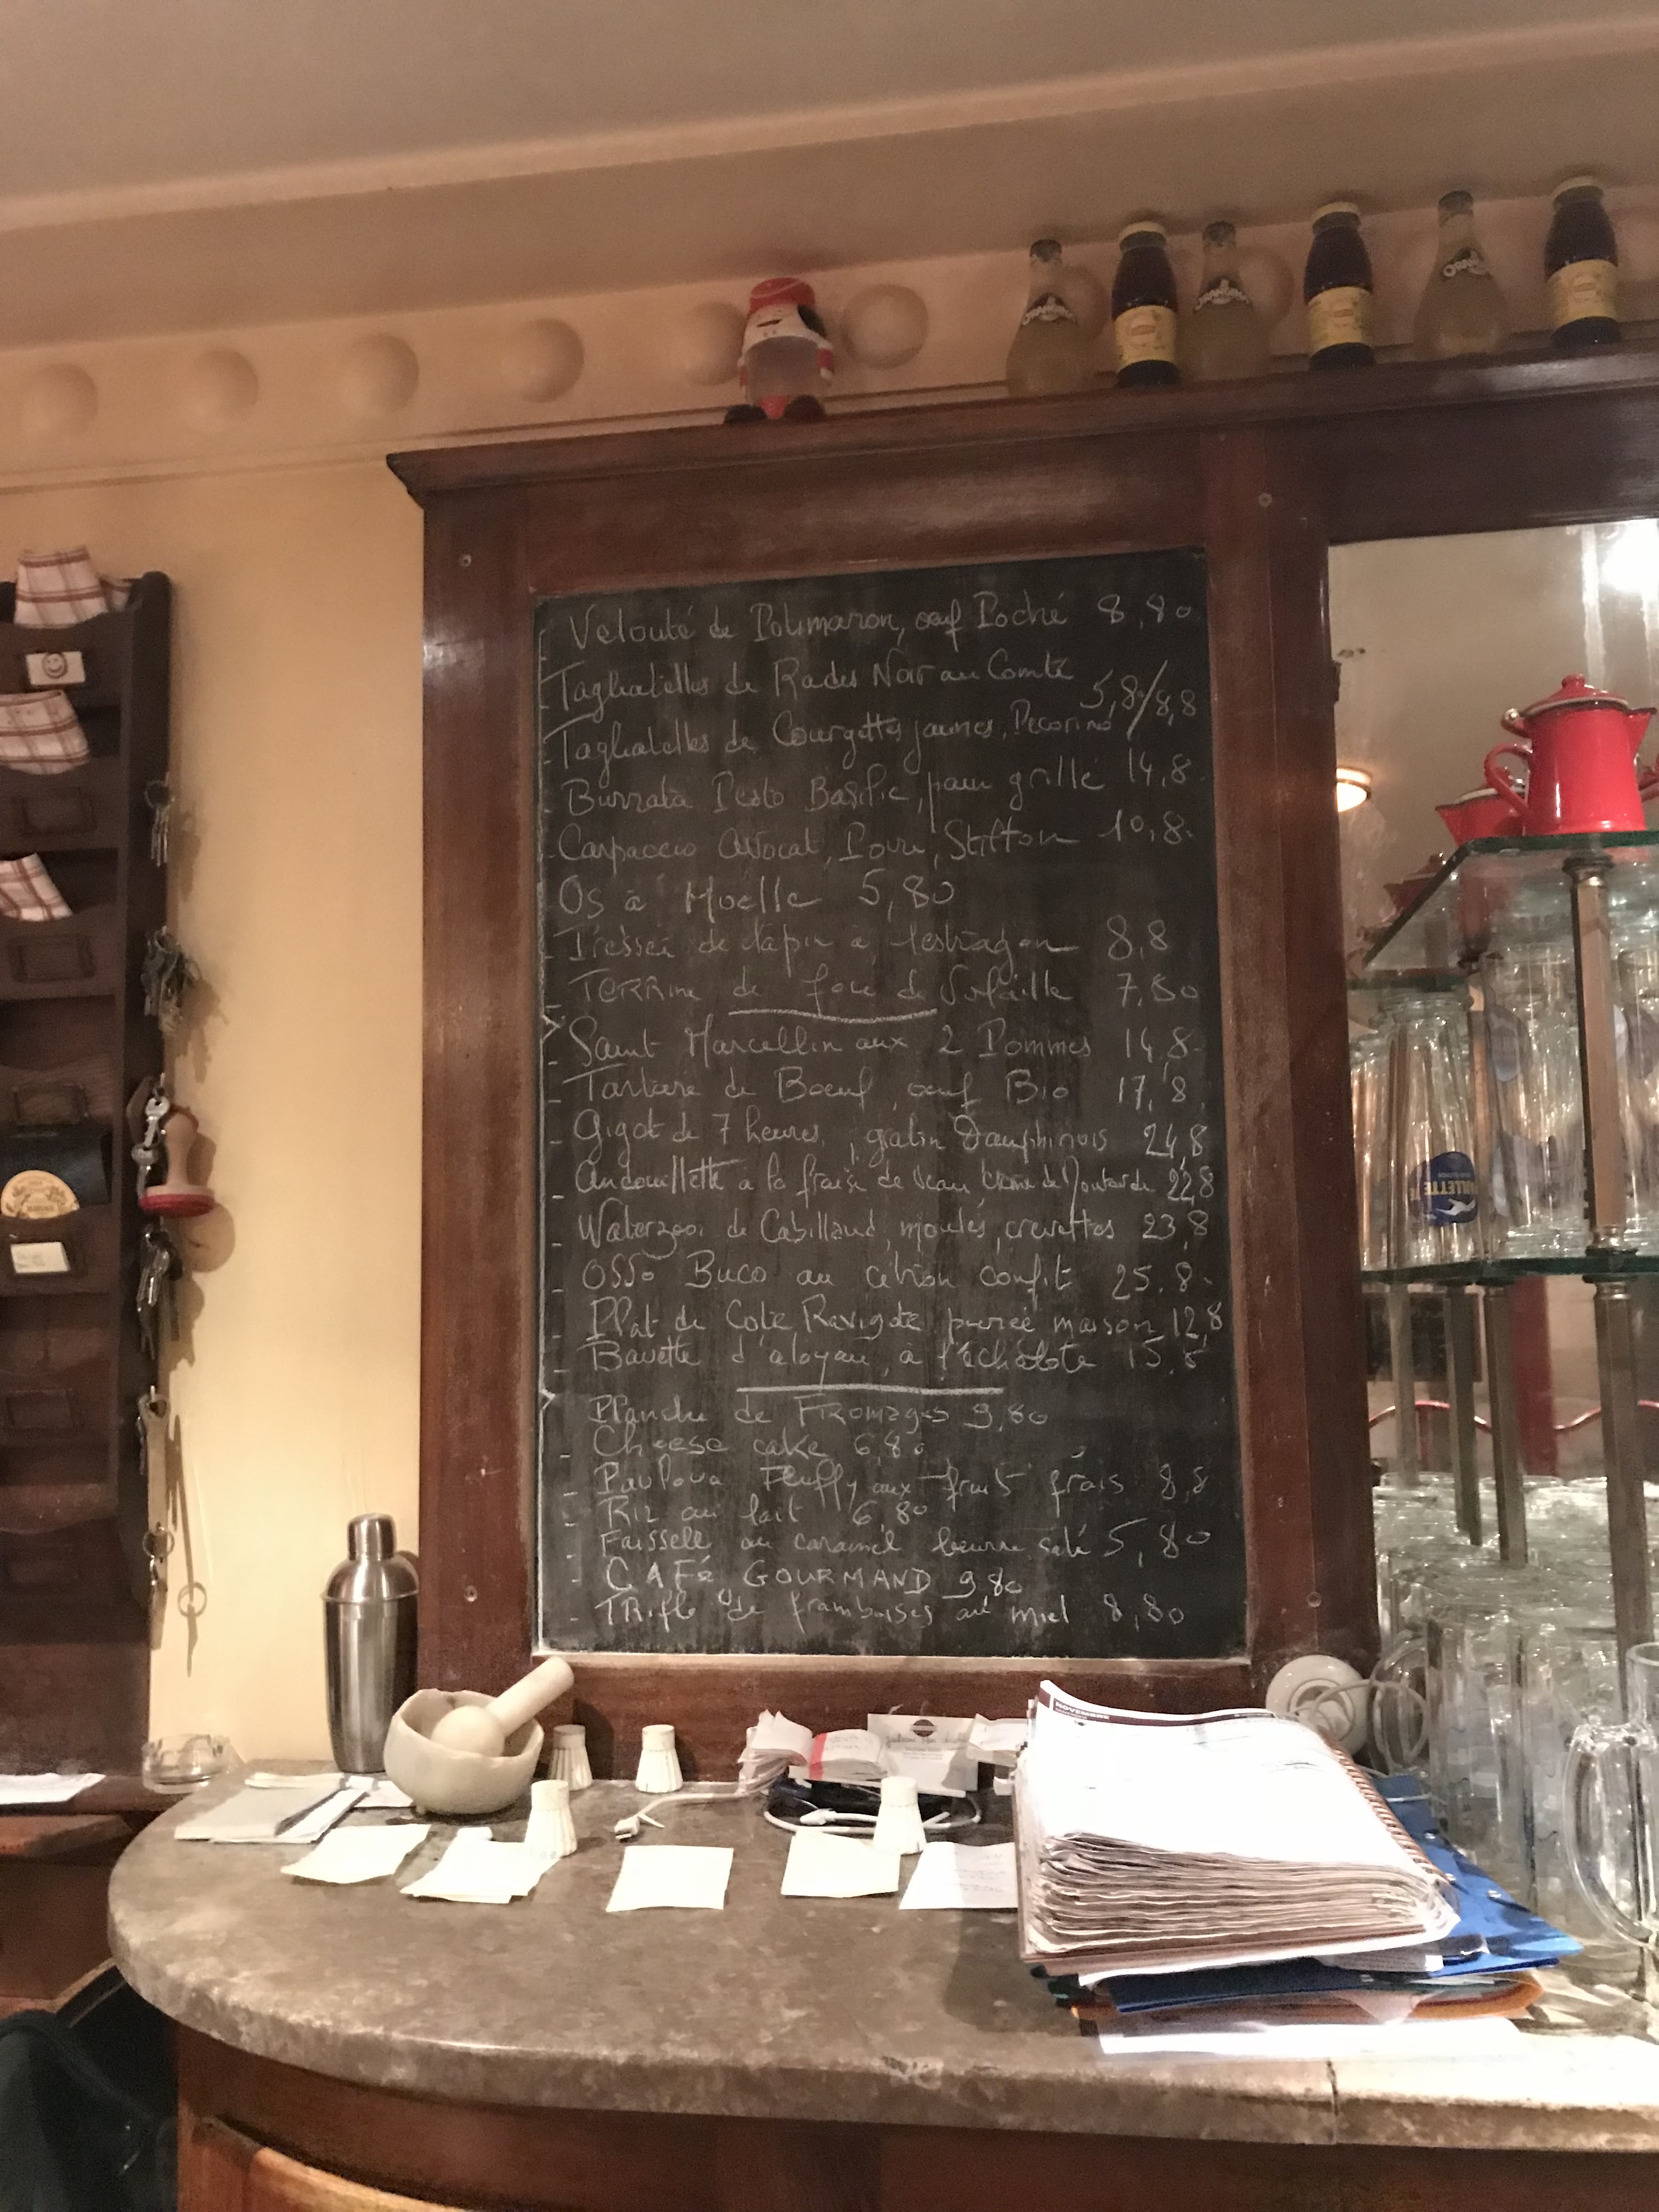 - Velouté de Potimaron, œuf Poché 8,80
- Tagliatelles de Radis Noir au Comté
5,8/8,8
- Tagliatelles de Courgettes jaunes, Pecorino
- Burrata Pesto Basilic, pain grillé 14,8
- Carpaccio Avocat, Poire, Stilton 10,8
- Os à Moelle 5,80
- de lapin à l'estragon 8,8
- TERRine de foie de Volaille 7,80
- Saint Marcellin aux 2 Pommes 14,8
- Tartare de Boeuf, œuf Bio 17,8
- Gigot de 7 heures, gratin Dauphinois 24,8
- Andouillette à la fraise de veau crème de Moutarde 22,8
- Waterzooi de Cabillaud, moules, crevettes 23,8
- OSSo Buco au citron confit 25.8
- Plat de Côte Ravigote purée maison 12,8
- Bavette d'aloyau, à l'échalote 15,8
- Planche de FROmages 9,80
- Cheese cake 6,80
- Pavlova Fluffy aux fruits frais 8,8
- Riz au lait 6,80
- Faisselle au caramel beurre salé 5,80
- CAFé GOURMAND 9,80
- TRifle de framboises au miel 8,80
ORANGINA
ORANGINA
NOVEMBRE